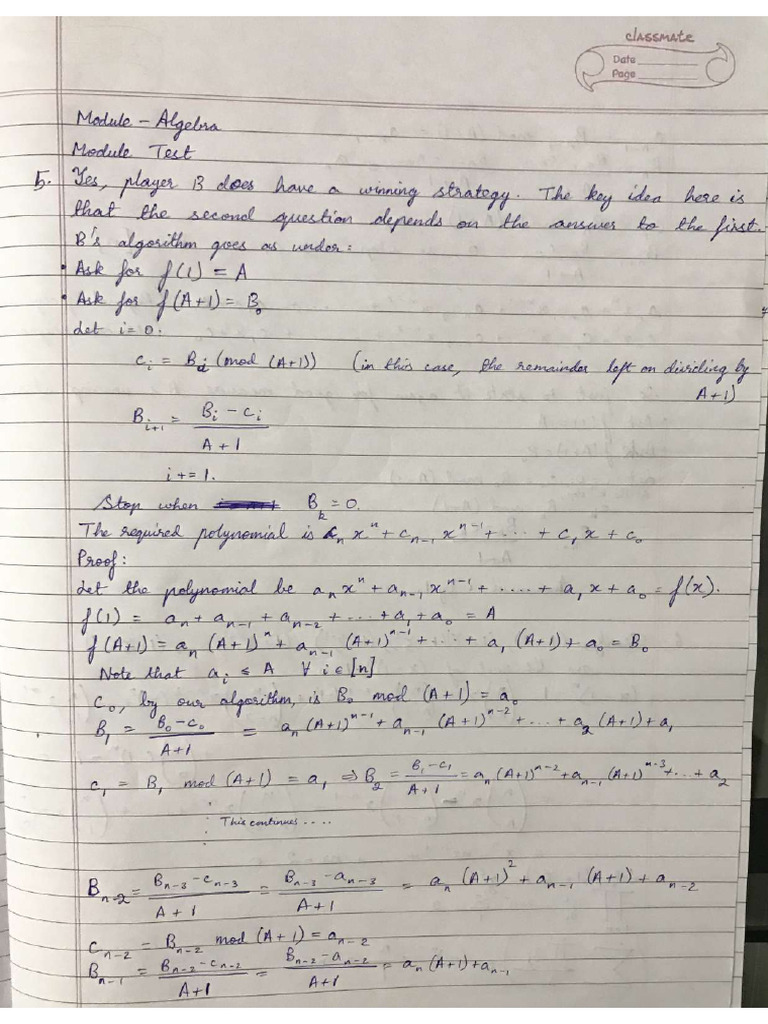 classmate
Date
Page
Module - Algebra
Module Test
5. Yes, player B does have a winning strategy. The key idea here is
that the second question depends on the answer to the first.
B's algorithm goes as under:
• Ask for f(1) = A
• Ask for f(A+1) = B₀
Let i = 0.
c_i = B_i (mod (A+1)) (in this case, the remainder left on dividing by
A+1)
B_{i+1} = (B_i - c_i)/(A+1)
i += 1.
Stop when B_k = 0.
The required polynomial is c_n x^n + c_{n-1} x^{n-1} + ... + c₁ x + c₀
Proof:
Let the polynomial be a_n x^n + a_{n-1} x^{n-1} + .... + a₁ x + a₀ = f(x).
f(1) = a_n + a_{n-1} + a_{n-2} + ... + a₁ + a₀ = A
f(A+1) = a_n (A+1)^n + a_{n-1} (A+1)^{n-1} + ... + a₁ (A+1) + a₀ = B₀
Note that a_i ≤ A ∀ i ∈ [n]
C₀, by our algorithm, is B₀ mod (A+1) = a₀
B₁ = (B₀ - c₀)/(A+1) = a_n (A+1)^{n-1} + a_{n-1} (A+1)^{n-2} + ... + a₂ (A+1) + a₁
c₁ = B₁ mod (A+1) = a₁ ⇒ B₂ = (B₁ - c₁)/(A+1) = a_n (A+1)^{n-2} + a_{n-1} (A+1)^{n-3} + ... + a₂
This continues ....
B_{n-2} = (B_{n-3} - c_{n-3})/(A+1) = (B_{n-3} - a_{n-3})/(A+1) = a_n (A+1)² + a_{n-1} (A+1) + a_{n-2}
c_{n-2} = B_{n-2} mod (A+1) = a_{n-2}
B_{n-1} = (B_{n-2} - c_{n-2})/(A+1) = (B_{n-2} - a_{n-2})/(A+1) = a_n (A+1) + a_{n-1}